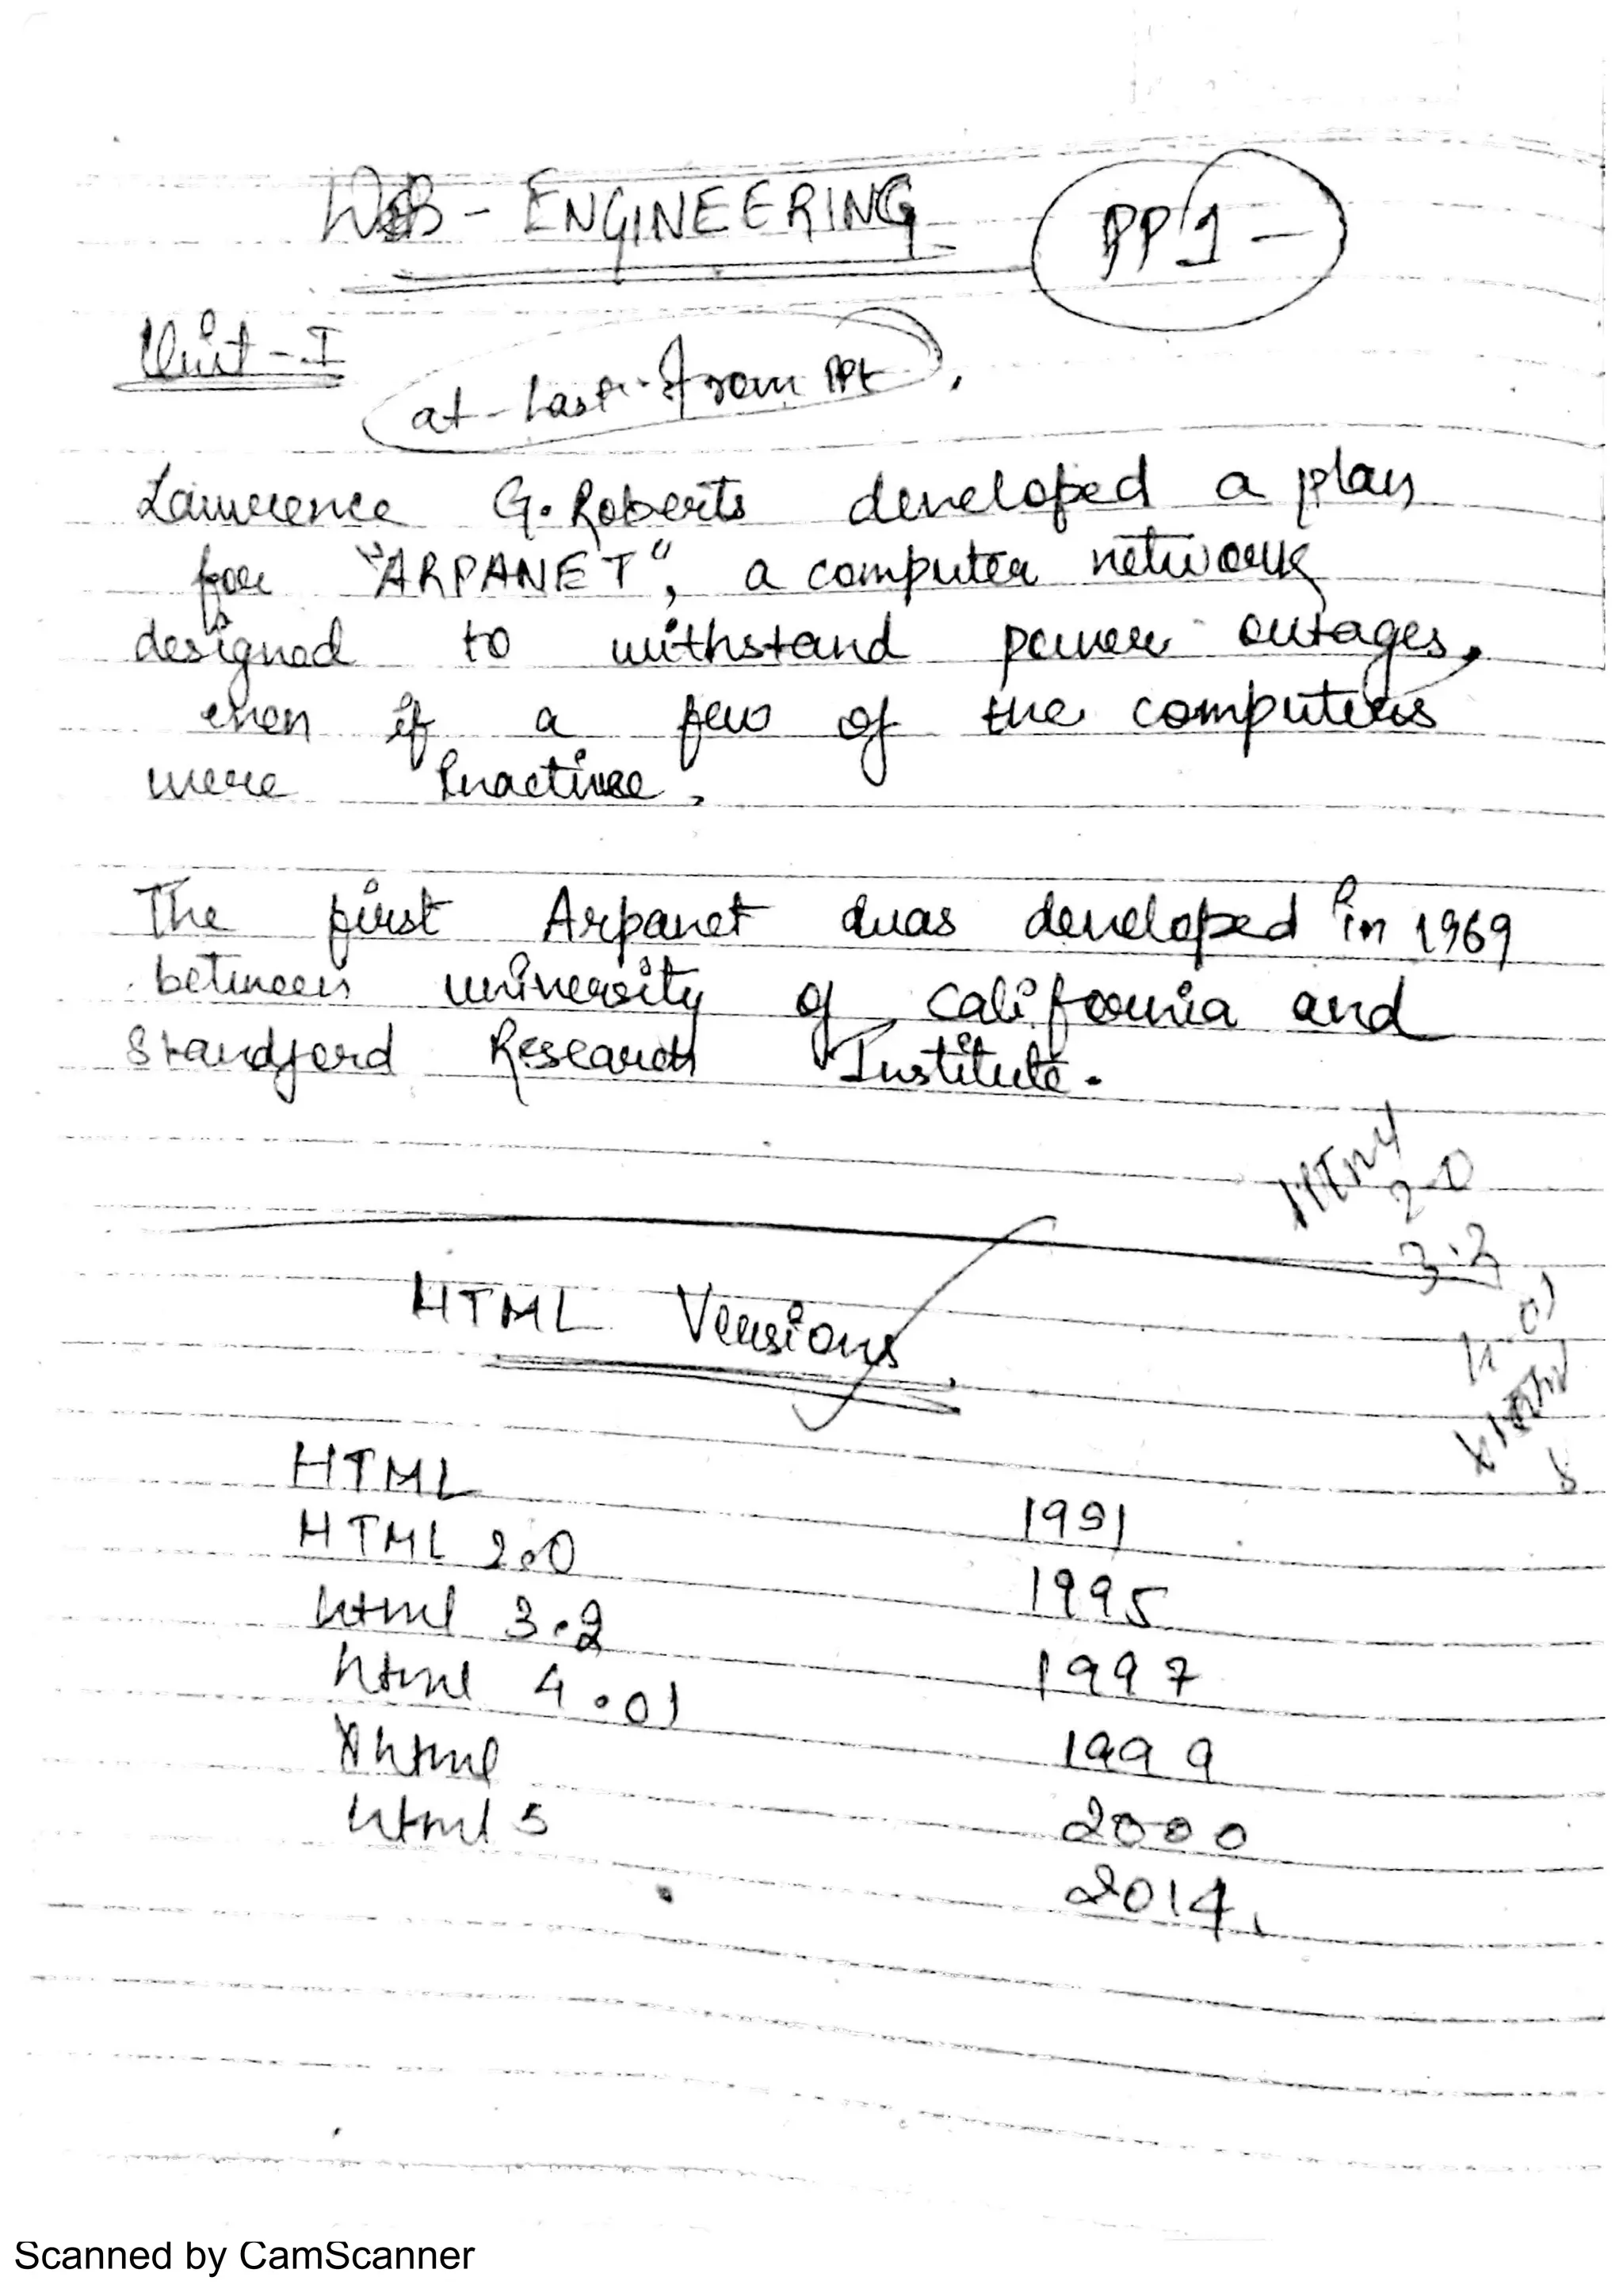 WEB - ENGINEERING
PP1 -
Unit - I
at last from PPt
Lawrence G. Roberts developed a plan
for "ARPANET", a computer network
designed to withstand power outages,
even if a few of the computers
were Inactive.
The first Arpanet was developed in 1969
between university of California and
Standford Research Institute.
2.0
3.2
HTML Versions
HTML 1991
HTML 2.0 1995
html 3.2 1997
html 4.01 1999
Xhtml 2000
html 5 2014
Scanned by CamScanner